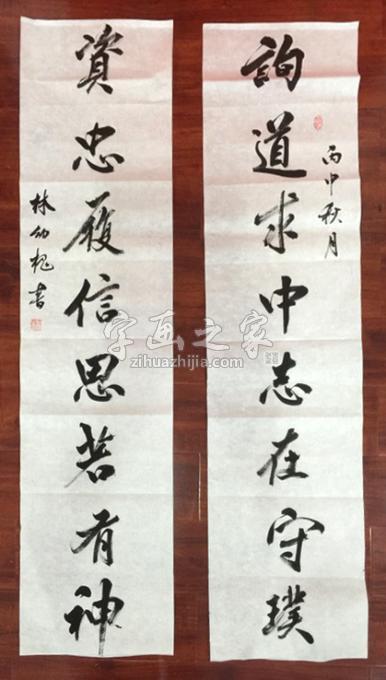 詢道求中志在守璞
丙申秋月
資忠履信思若有神
林幼槐書
字画之家
zihuazhijia.com